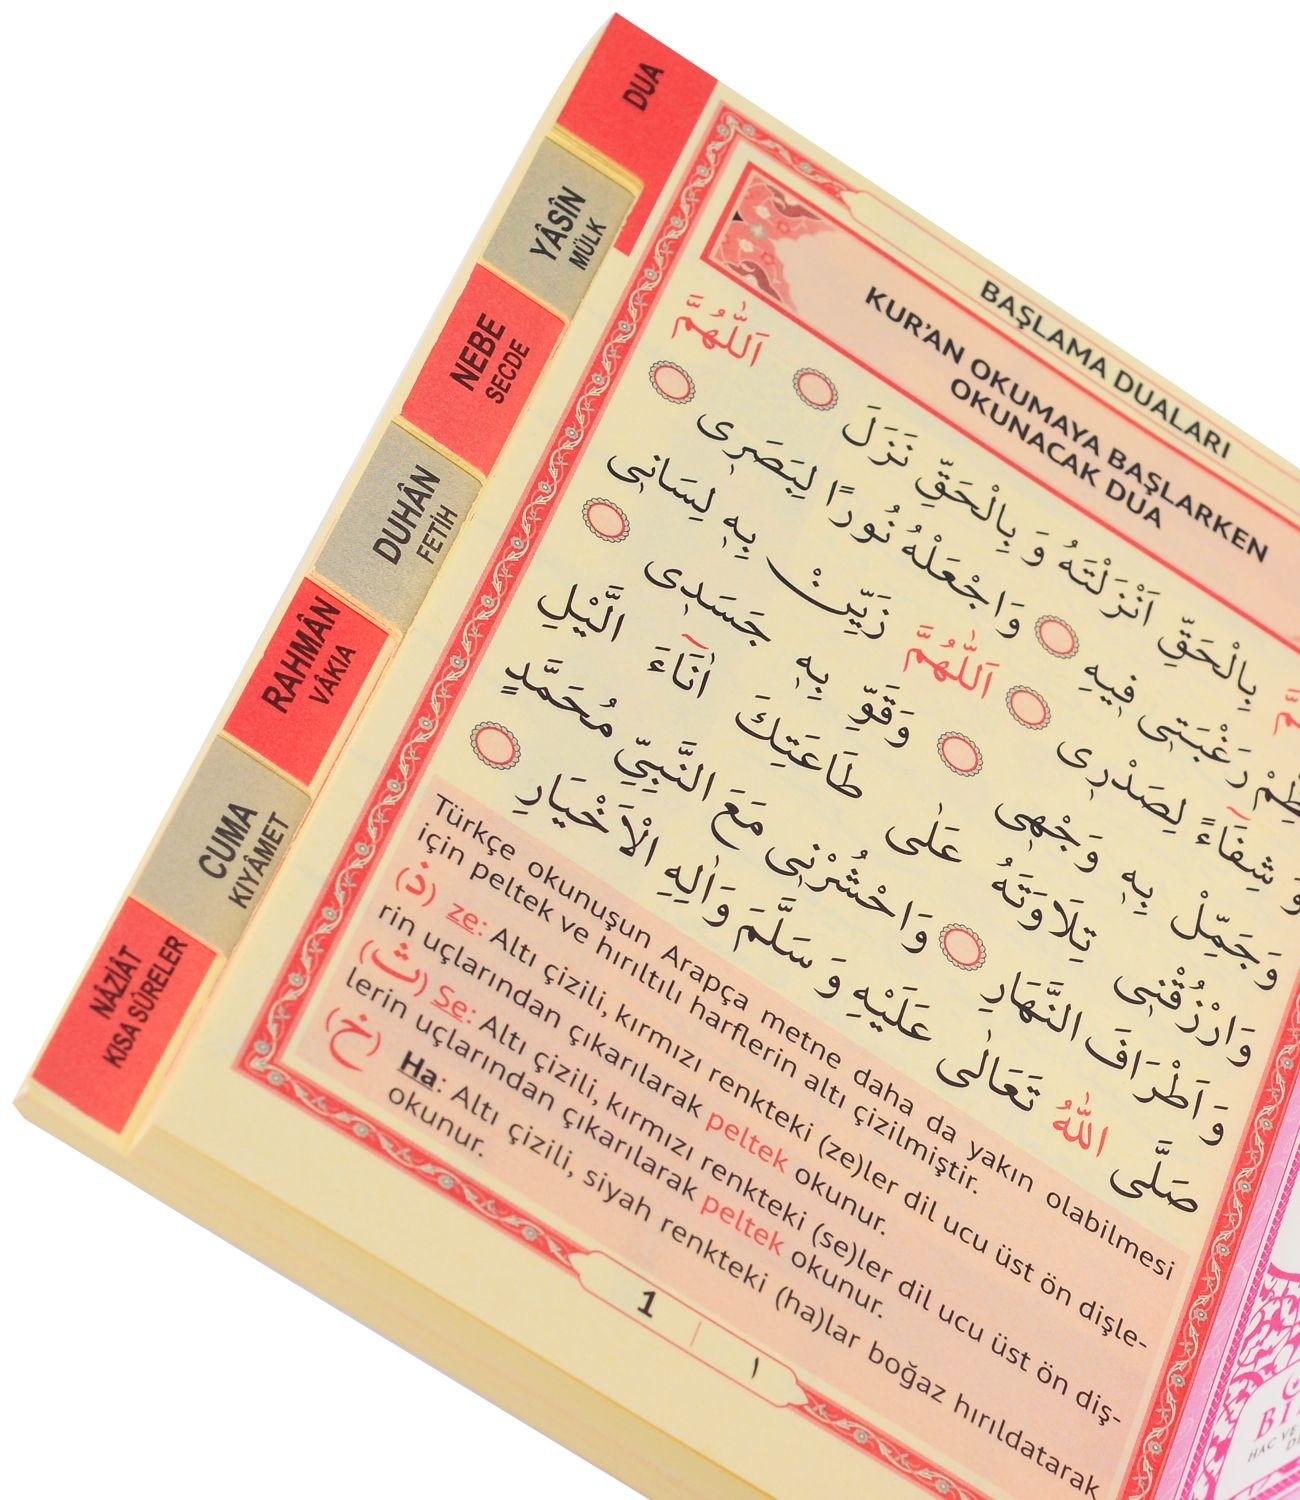 DUA
YÂSÎN
MÜLK
NEBE
SECDE
DUHÂN
FETİH
RAHMÂN
VÂKIA
CUMA
KIYÂMET
NÂZİÂT
KISA SÛRELER
BAŞLAMA DUALARI
KUR'AN OKUMAYA BAŞLARKEN
OKUNACAK DUA
بِالْحَقِّ اَنْزَلْتَهُ وَ بِالْحَقِّ نَزَلَ اَللّٰهُمَّ
رَغْبَتٖى فٖيهِ وَاجْعَلْهُ نُورًا لِبَصَرٖى
شِفَٓاءً لِصَدْرٖى اَللّٰهُمَّ زَيِّنْ بِهٖ لِسَانٖى
وَجَمِّلْ بِهٖ وَجْهٖى وَقَوِّ بِهٖ جَسَدٖى
وَارْزُقْنٖى تِلَاوَتَهُ عَلٰى طَاعَتِكَ اٰنَٓاءَ الَّيْلِ
وَاَطْرَافَ النَّهَارِ وَاحْشُرْنٖى مَعَ النَّبِيِّ مُحَمَّدٍ
صَلَّى اللّٰهُ تَعَالٰى عَلَيْهِ وَ سَلَّمَ وَاٰلِهِ الْاَخْيَارِ
Türkçe okunuşun Arapça metne daha da yakın olabilmesi
için peltek ve hırıltılı harflerin altı çizilmiştir.
(ذ) ze: Altı çizili, kırmızı renkteki (ze)ler dil ucu üst ön dişle-
rin uçlarından çıkarılarak peltek okunur.
(ث) Se: Altı çizili, kırmızı renkteki (se)ler dil ucu üst ön diş-
lerin uçlarından çıkarılarak peltek okunur.
(خ) Ha: Altı çizili, siyah renkteki (ha)lar boğaz hırıldatarak
okunur.
1 ١